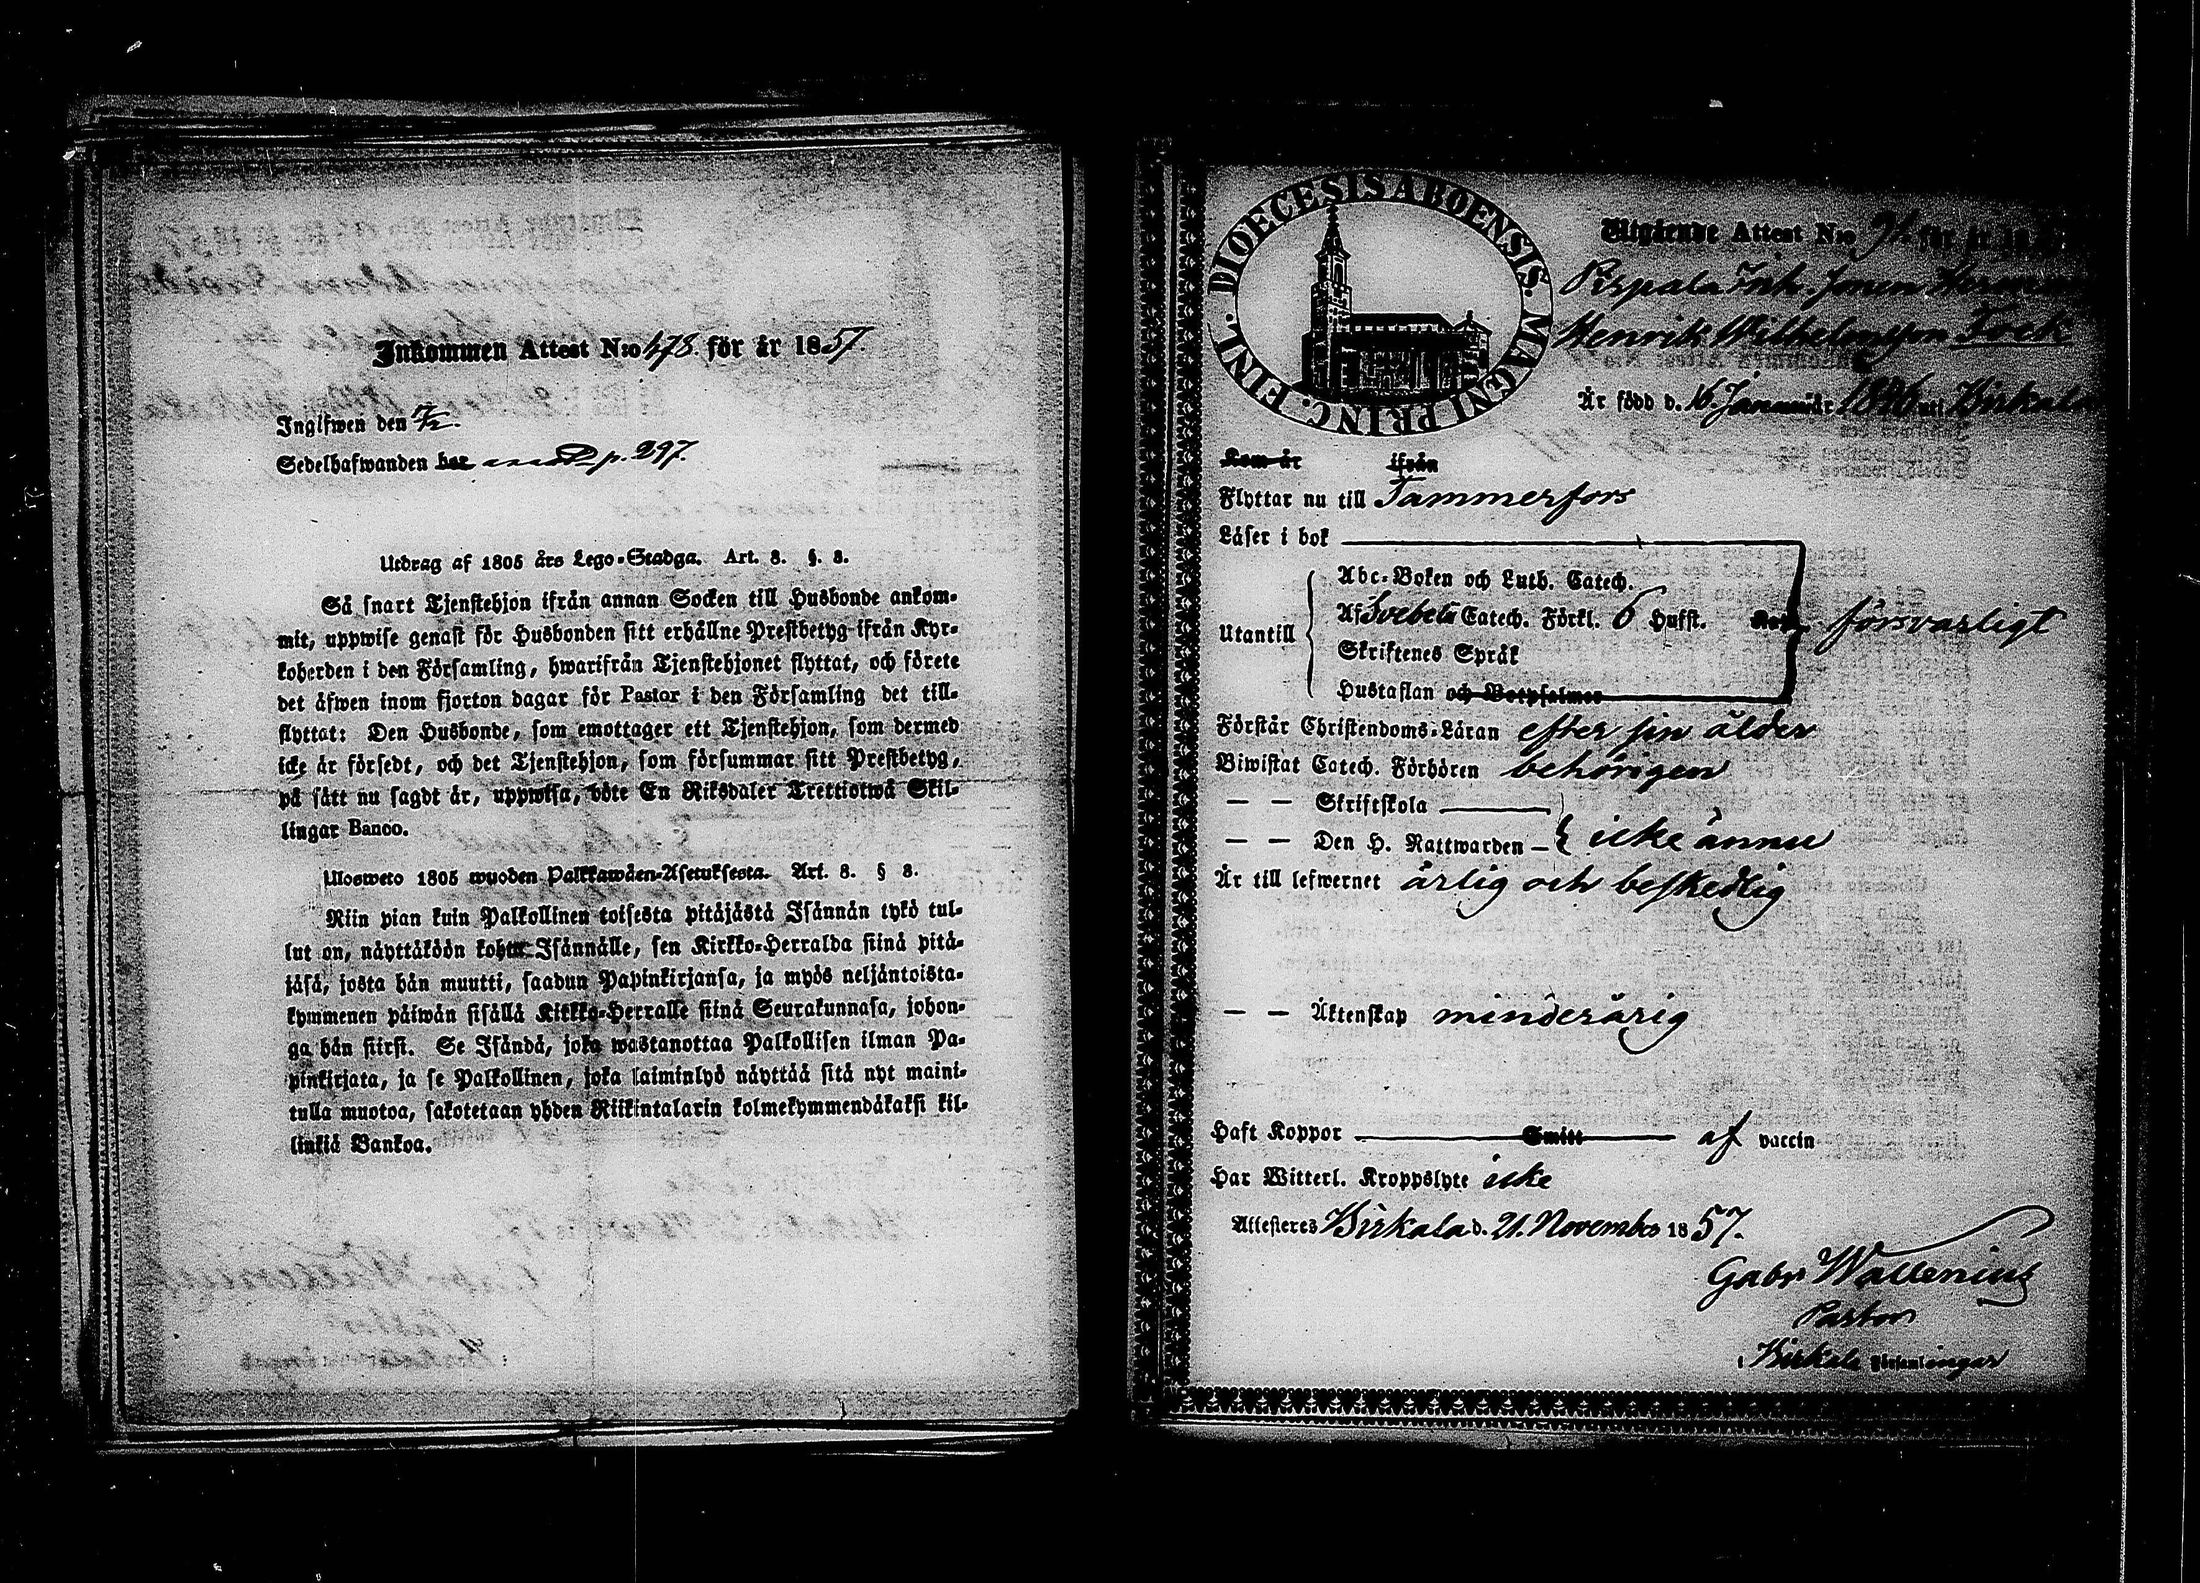 Inkommen Attest N:o 478. för år 1857.
Inglfwen den 7/12.
Sedelhafwanden har p. 297.
Utdrag af 1805 års Lego-Stadga. Art. 8. §. 8.
Så snart Tjenstehjon ifrån annan Socken till Husbonde ankom-
mit, uppwise genast för Husbonden sitt erhållne Prestbetyg ifrån Kyr-
koherden i den Församling, hwarifrån Tjenstehjonet flyttat, och förete
det äfwen inom fjorton dagar för Pastor i den Församling det till-
flyttat: Den Husbonde, som emottager ett Tjenstehjon, som dermed
icke är försedt, och det Tjenstehjon, som försummar sitt Prestbetyg,
på sätt nu sagdt är, uppwisa, böte En Riksdaler Trettiotwå Skil-
lingar Banco.
Ulosweto 1805 wuoden Palkkawäen-Asetuksesta. Art. 8. § 8.
Niin pian kuin Palkollinen toisesta pitäjästä Isännän tykö tul-
lut on, näyttäköön kohta Isännälle, sen Kirkko-Herralda siinä pitä-
jäsä, josta hän muutti, saadun Papinkirjansa, ja myös neljäntoista-
kymmenen päiwän sisällä Kirkko-Herralle siinä Seurakunnasa, johon-
ga hän siirsi. Se Isändä, joka wastanottaa Palkollisen ilman Pa-
pinkirjata, ja se Palkollinen, joka laiminlyö näyttää sitä nyt maini-
tulla muotoa, sakotetaan yhden Riikintalarin kolmekymmendäkaksi kil-
linkiä Bankoa.
DIOECESIS ABOENSIS. MAGNI PRINC. FINL.
Utgående Attest N:o 91. för år 18
Pispala Inh. Sonen Herman
Henrik Wilhelmsson Fock
Är född d. 16 Januar 1846 uti Birkala
Kom år ifrån
Flyttar nu till Tammerfors
Läser i bok
Utantill
Abc-Boken och Luth. Catech.
Af Svebelii Catech. Förkl. 6 Hufst. försvarligt
Skriftenes Språk
Hustaflan och Botpsalmer
Förstår Christendoms-Läran efter sin ålder
Biwistat Catech. Förhören behörigen
— — Skriftskola
— — Den H. Nattwarden — icke ännu
Är till lefwernet ärlig och beskedlig
— — Äktenskap minderårig
Haft Koppor Smitt af vaccin
Har Witterl. Kroppslyte icke
Attesteres Birkala d. 21. November 1857.
Gabr Wallenius
Pastor
i Birkala Församlingar